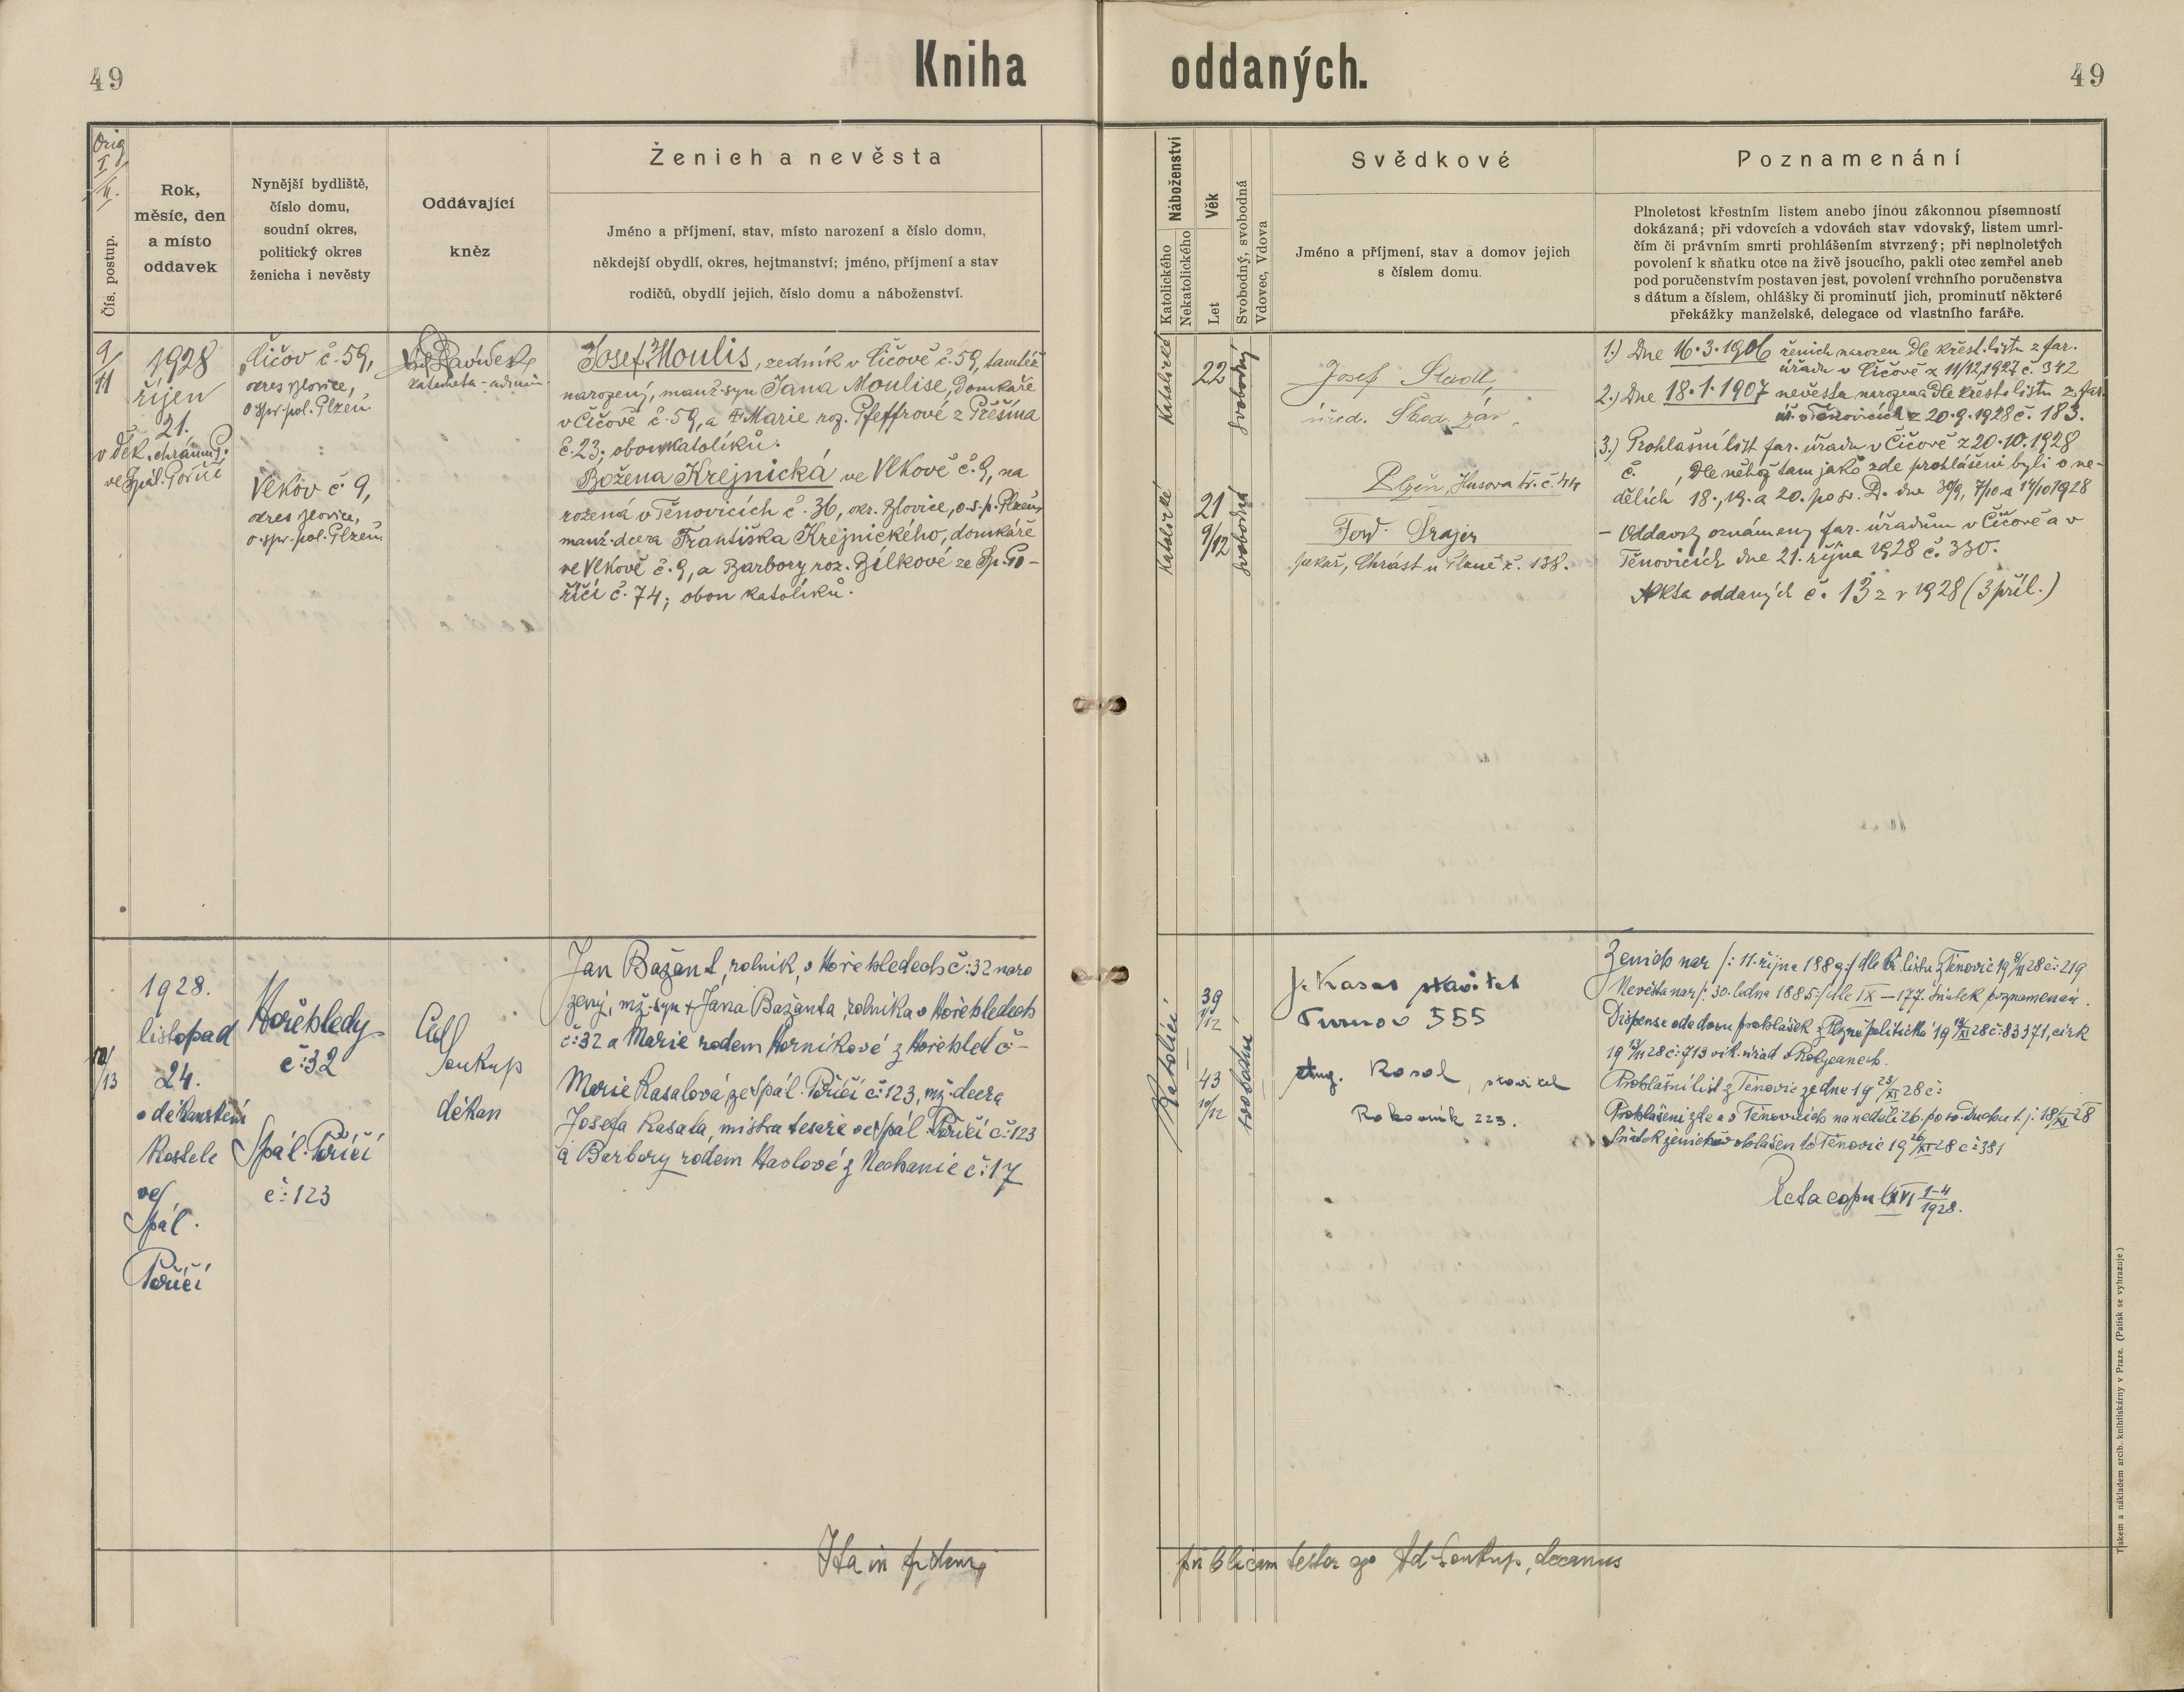 49
Kniha oddaných.
49
Orig
I/II.
Čís. postup.
Rok,
měsíc, den
a místo
oddavek
Nynější bydliště,
číslo domu,
soudní okres,
politický okres
ženicha i nevěsty
Oddávající
kněz
Ženich a nevěsta
Jméno a příjmení, stav, místo narození a číslo domu,
někdejší obydlí, okres, hejtmanství; jméno, příjmení a stav
rodičů, obydlí jejich, číslo domu a náboženství.
Náboženství
Katolického
Nekatolického
Věk
Let
Svobodný, svobodná
Vdovec, Vdova
Svědkové
Jméno a příjmení, stav a domov jejich
s číslem domu.
Poznamenání
Plnoletost křestním listem anebo jinou zákonnou písemností
dokázaná; při vdovcích a vdovách stav vdovský, listem umrl-
čím či právním smrti prohlášením stvrzený; při neplnoletých
povolení k sňatku otce na živě jsoucího, pakli otec zemřel aneb
pod poručenstvím postaven jest, povolení vrchního poručenstva
s dátum a číslem, ohlášky či prominutí jich, prominutí některé
překážky manželské, delegace od vlastního faráře.
9/11
1928
říjen
21.
v děk. chrámu P.
ve Spál. Poříčí
Číčov č. 59,
okres Blovice,
o. spr. pol. Plzeň
Vlkov č 9,
okres Blovice,
o. spr. pol. Plzeň
katecheta - admin.
Josef Moulis, zedník v Číčově č. 59, tamtéž
narozený, manž. syn Jana Moulise, domkáře
v Číčově č. 59, a Marie roz. Pfeffrové z Přešína
č. 23; obou katolíků.
Božena Krejnická ve Vlkově č. 9, na
rozená v Těnovicích č. 36, okr. Blovice, o. s. p. Plzeň,
manž. dcera Františka Krejnického, domkáře
ve Vlkově č. 9, a Barbory roz. Bílkové ze Sp. Po-
říčí č. 74; obou katolíků.
Katolické
22
svobodný
Katolické
21
9/12
svobodná
Josef Stadl,
úřed. Škod. záv.
Plzeň, Husova tř. č. 44
Ferd. Šrajer
pekař, Chrást u Plzně č. 138.
1.) Dne 16. 3. 1906 ženich narozen dle křest. listu z far.
úřadu v Číčově z 11/12 1927 č. 342
2.) Dne 18. 1. 1907 nevěsta narozena dle křest. listu z far.
úř. v Těnovicích z 20. 9. 1928 č. 183.
3.) Prohlašní list far. úřadu v Číčově z 20. 10. 1928
č. , dle něhož tam jako zde prohlášeni byli o ne-
dělích 18., 19. a 20. po sv. D. dne 30/9, 7/10 a 14/10 1928
- Oddavky oznámeny far. úřadům v Číčově a v
Těnovicích dne 21. října 1928 č. 330.
Akta oddaných č. 13 z r 1928 (3 příl.)
10/13
1928.
listopad
24.
v děkanském
kostele
ve
Spál.
Poříčí
Hořehledy
č: 32
Spál. Poříčí
č: 123
Ad
Soukup
děkan
Jan Bažant, rolník, v Hořehledech č: 32 naro
zený, mž. syn † Jana Bažanta, rolníka v Hořehledech
č: 32 a Marie rodem Horníkové z Hořehled č -
Marie Kasalová ze Spál. Poříčí č: 123, mž. dcera
Josefa Kasala, mistra tesaře ve Spál. Poříčí č: 123
a Barbory rodem Havlové z Nechanic č: 17
Katolíci
39
1/12
43
10/12
svobodní
J. Kasal stavitel
Turnov 555
Aug. Kasal, stavitel
Rakovník 223.
Ženich nar /: 11. října 1889 :/ dle kř. listu z Těnovic 19 9/11 28 č: 219
Nevěsta nar /: 30. ledna 1885 :/ dle IX - 177. Sňatek poznamenán.
Dispense ode dvou prohlášek z Plzně politická 19 12/XI 28 č: 83371, církv
19 13/11 28 č: 713 vik. úřad v Rokycanech.
Prohlašní list z Těnovic ze dne 19 23/XI 28 č:
Prohlášeni zde a v Těnovicích na neděli 26. po sv. Duchu t. j. 18/XI 28
Sňatek ženichův ohlášen do Těnovic 19 26/XI 28 č: 381
Acta copul. XVI 1-4
1928.
Ita in fidem
publicam testor ego Ad. Soukup, decanus
Tiskem a nákladem arcib. knihtiskárny v Praze. (Patisk se vyhrazuje.)